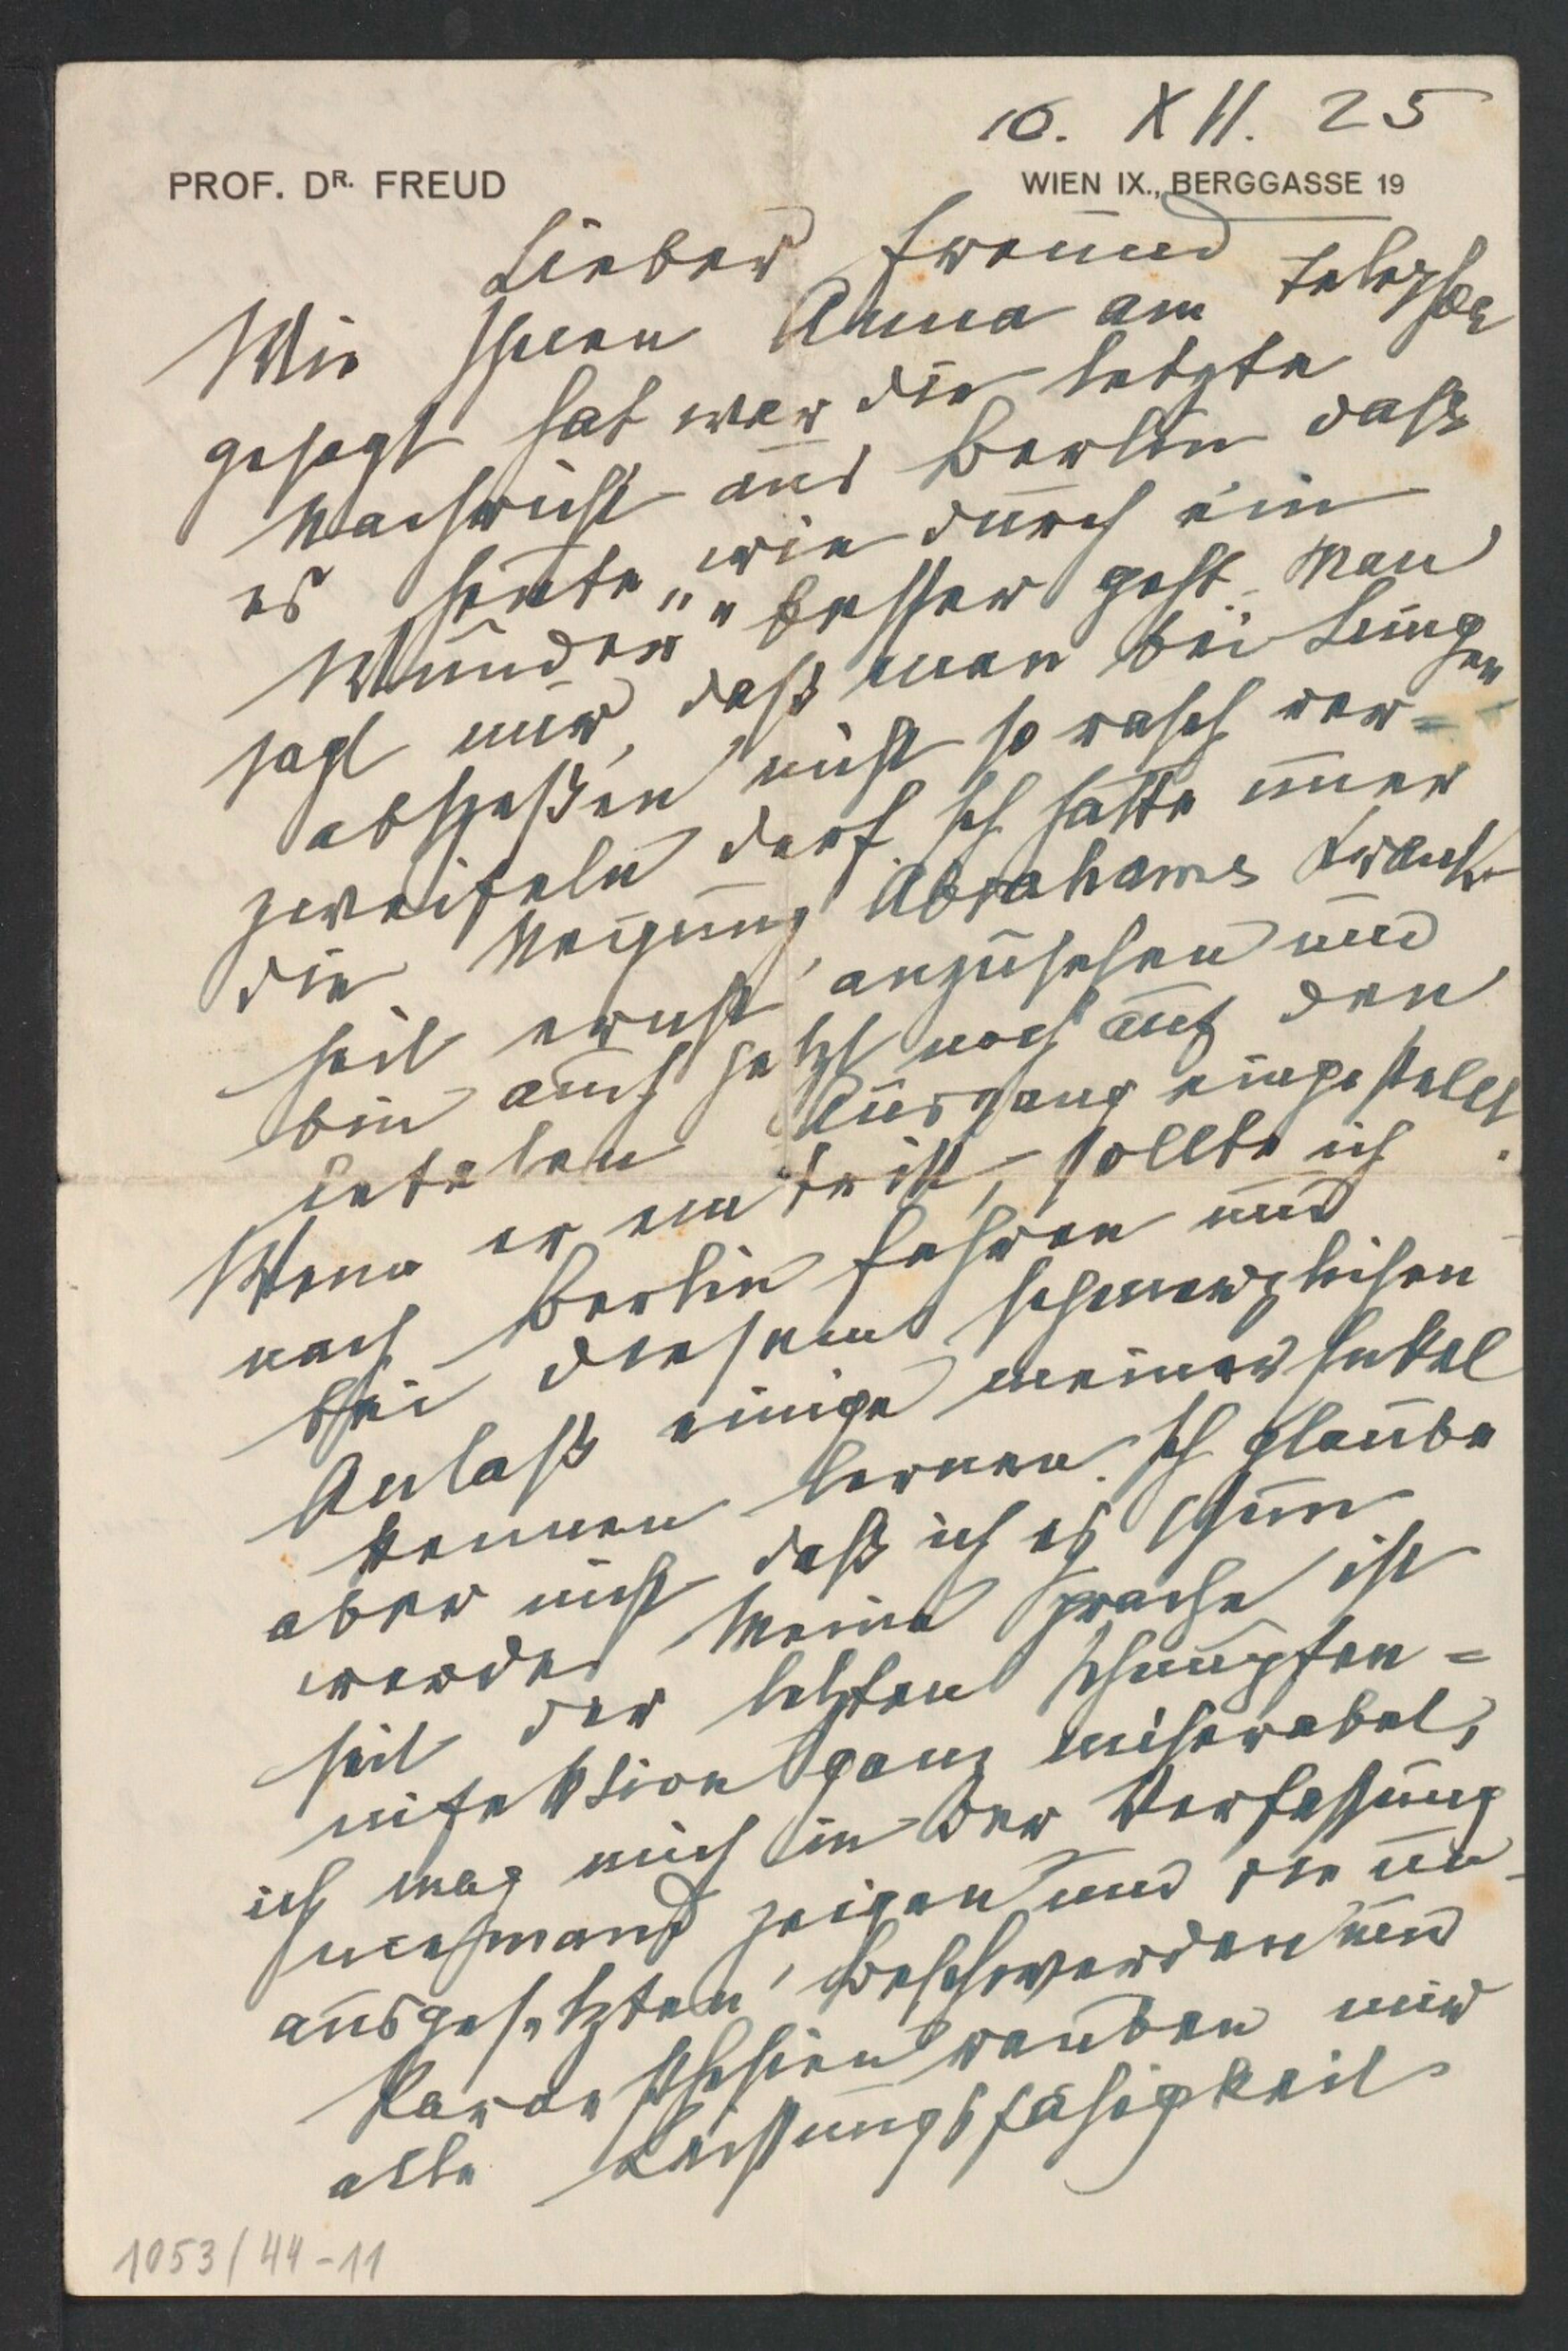 10. XII. 25
PROF. DR. FREUD
WIEN IX., BERGGASSE 19
Lieber Freund
Wie Ihnen Anna am Teleph
gesagt hat war die letzte
Nachricht aus Berlin daß
es heute „wie durch ein
Wunder“ besser geht. Man
sagt mir, daß man bei Lungen
abszeßen nicht so rasch ver=
zweifeln darf. Ich hatte immer
die Neigung, Abrahams Krank
heit ernst anzusehen und
bin auch jetzt noch auf den
letalen Ausgang eingestellt.
Wenn er eintritt, sollte ich
nach Berlin fahren und
bei diesem schmerzlichen
Anlaß einige meiner Enkel
kennen lernen. Ich glaube
aber nicht daß ich es thun
werde. Meine Sprache ist
seit der letzten Schnupfen=
infektion ganz miserabel,
ich mag mich in der Verfassung
niemand zeigen und die un-
ausgesetzten Beschwerden und
Paraesthesien rauben mir
alle Leistungsfähigkeit
1053/44-11